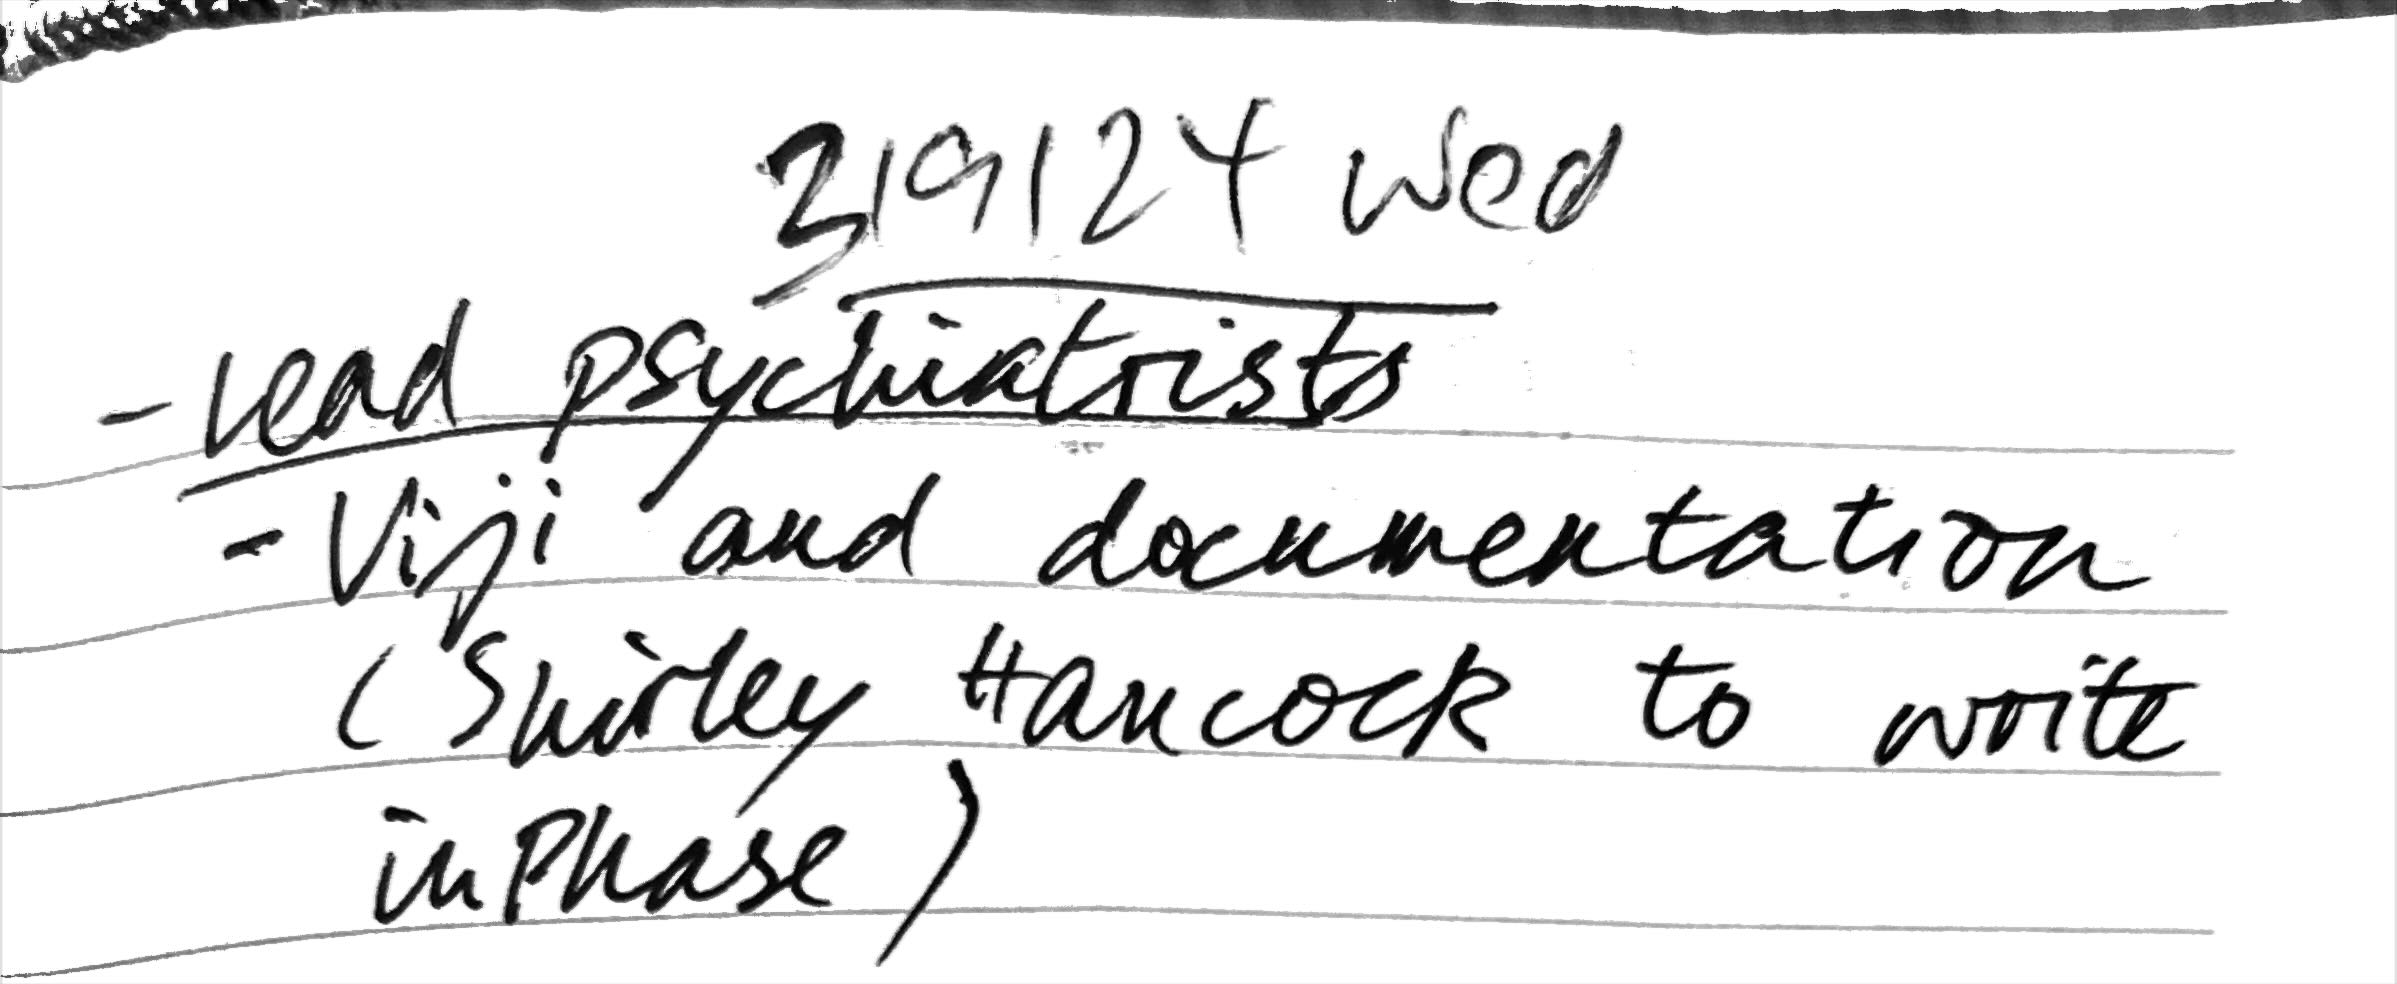 3/9/24 Wed
- lead psychiatrists
- Viji and documentation
(Shirley Hancock to write
in Phase)